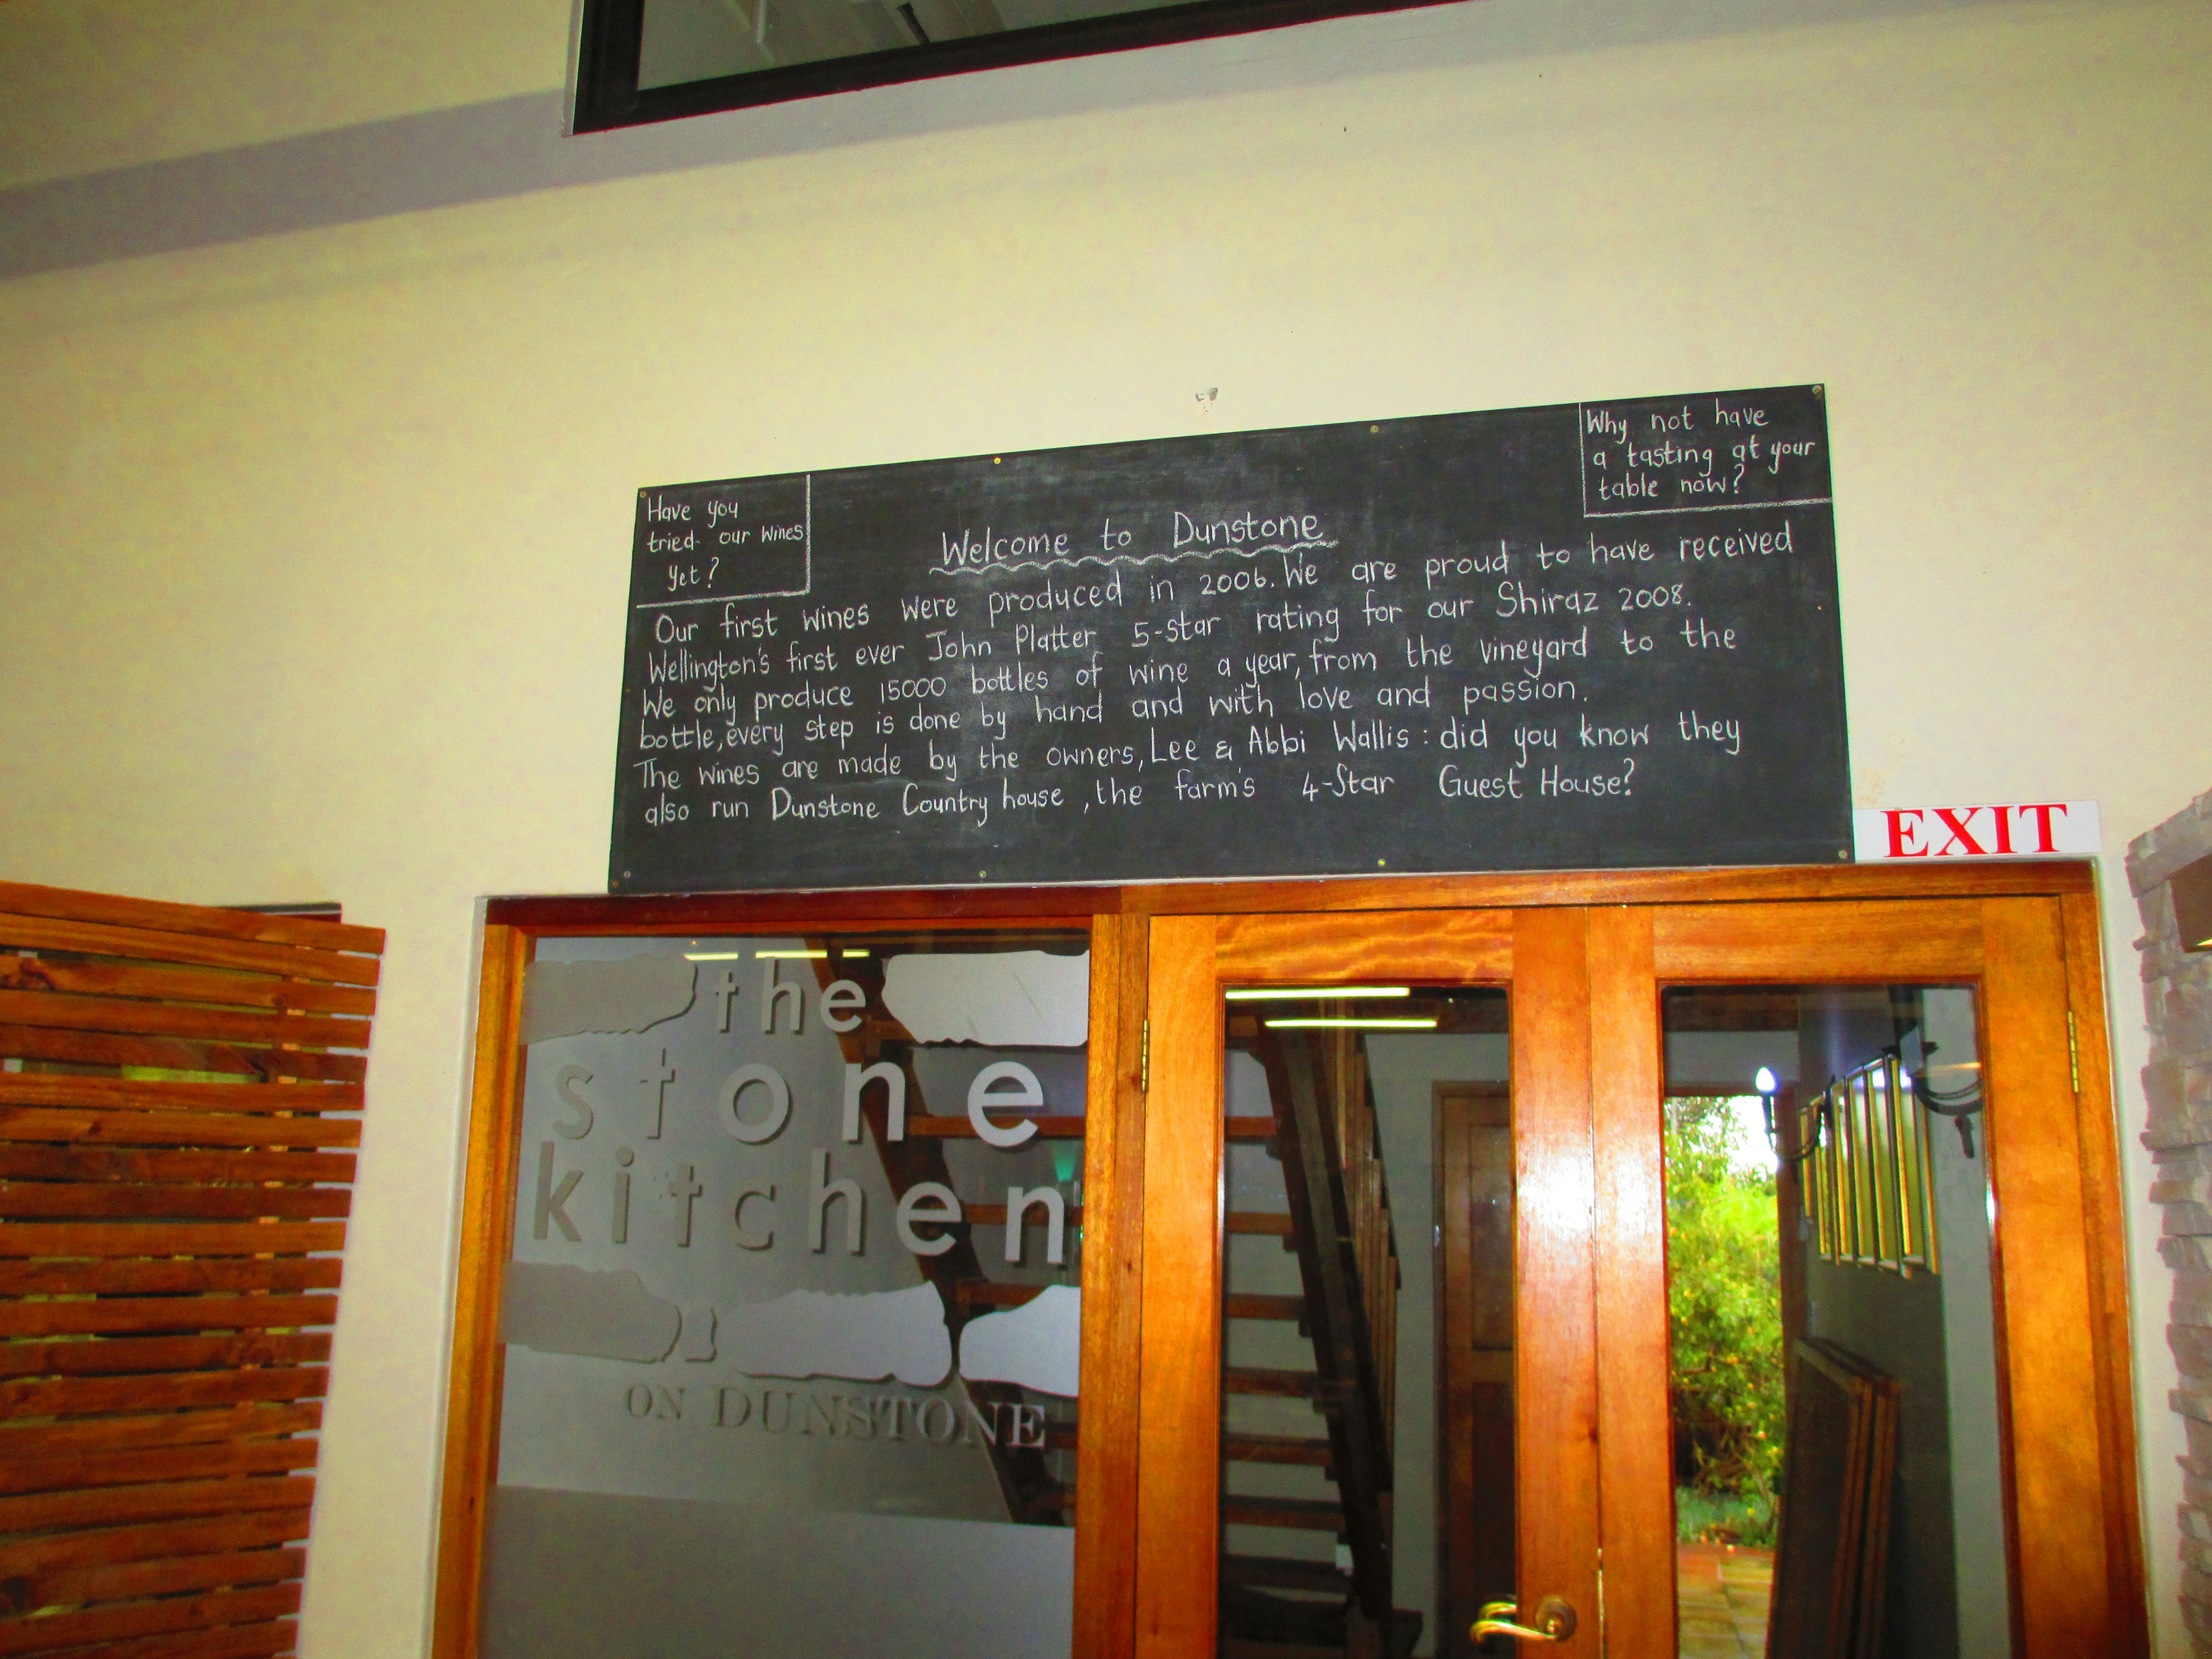 Have you
tried our wines
yet?
Why not have
a tasting at your
table now?
Welcome to Dunstone
Our first wines were produced in 2006. We are proud to have received
Wellington's first ever John Platter 5-star rating for our Shiraz 2008.
We only produce 15000 bottles of wine a year, from the vineyard to the
bottle, every step is done by hand and with love and passion.
The wines are made by the owners, Lee & Abbi Wallis : did you know they
also run Dunstone Country house , the farm's 4-Star Guest House?
EXIT
the
stone
kitchen
ON DUNSTONE